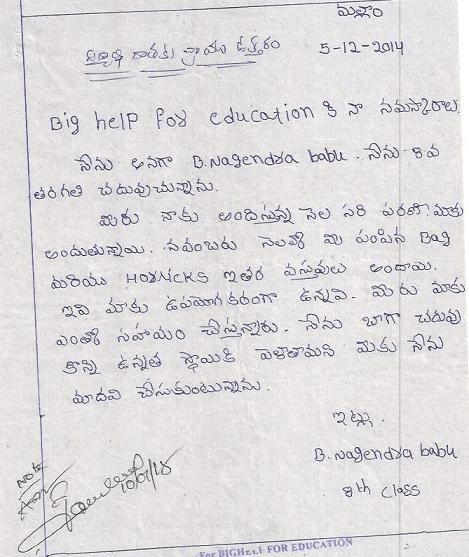 మల్లాం
విద్యార్థి దాతకు వ్రాయు ఉత్తరం
5-12-2014
Big help for education కి నా నమస్కారాలు
నేను అనగా B. Nagendra babu. నేను 8 వ
తరగతి చదువుచున్నాను.
మీరు నాకు అందిస్తున్న నెల సరి మాకు
అందుతున్నాయి. నవంబరు నెలలో మీ పంపిన Bag
మరియు HORLICKS ఇతర వస్తువులు అందాయి.
ఇవి మాకు ఉపయోగకరంగా ఉన్నవి. మీరు మాకు
ఎంతో సహాయం చేస్తున్నారు. నేను బాగా చదువు
కొన్ని ఉన్నత స్థాయికి వెళాతామని మీకు నేను
మాదవి చేసుకుంటున్నాను.
ఇట్లు.
B. Nagendra babu
8th class
For BIGHELP FOR EDUCATION